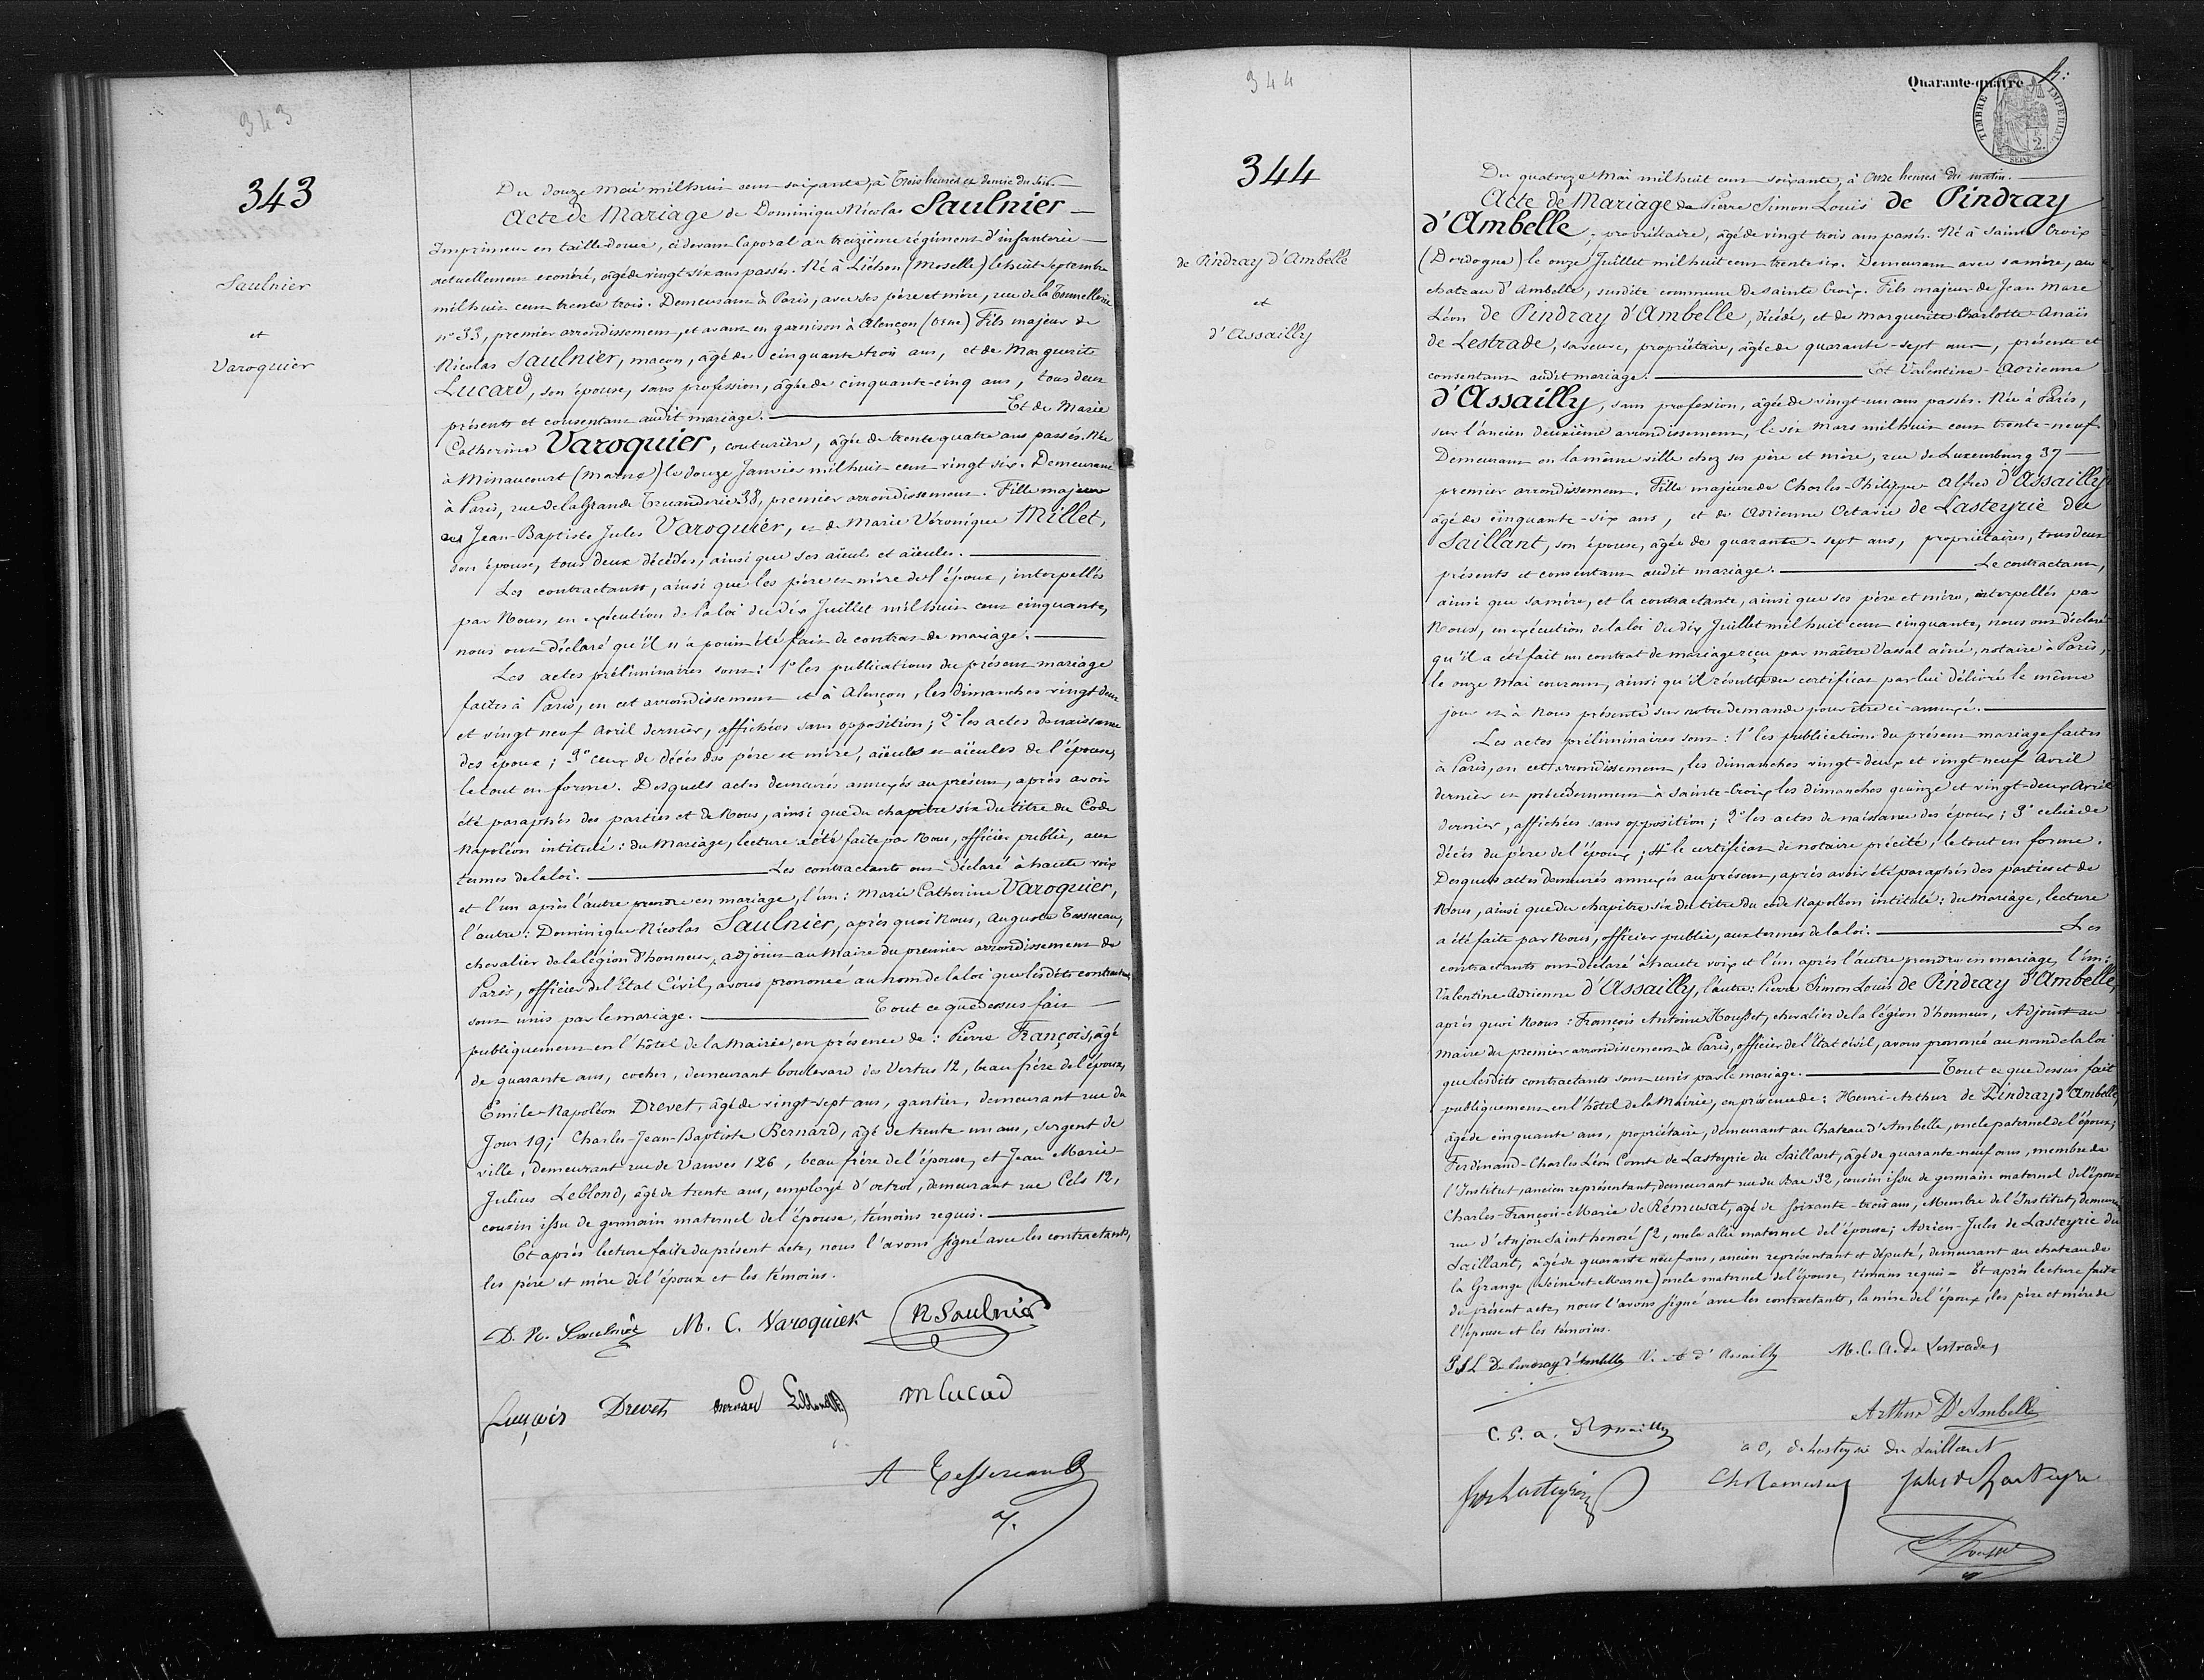 343
343
Saulnier
et
Varoquier
Du douze Mai mil huit cent soixante, à Trois heures et demie du soir.
Acte de Mariage de Dominique Nicolas Saulnier
Imprimeur en taille-douce, ci devant Caporal au treizième régiment d'infanterie
actuellement exonéré, âgé de vingt-six ans passés. Né à Liéhon (Moselle) le huit Septembre
mil huit cent trente trois. Demeurant à Paris, avec ses père et mère, rue de la Tonnellerie
n° 33, premier arrondissement, et avant en garnison à Alençon (Orne) Fils majeur de
Nicolas Saulnier, maçon, âgé de cinquante trois ans, et de Marguerite
Lucard, son épouse, sans profession, âgée de cinquante-cinq ans, tous deux
présents et consentant audit mariage. Et de Marie
Catherine Varoquier, couturière, âgée de trente quatre ans passés. Née
à Minaucourt (Marne) le douze Janvier mil huit cent vingt six. Demeurant
à Paris, rue de la Grande Truanderie 38, premier arrondissement. Fille majeure
de Jean-Baptiste Jules Varoquier, et de Marie Véronique Millet,
son épouse, tous deux décédés, ainsi que ses aïeuls et aïeules.
Les contractants, ainsi que les père et mère de l'époux, interpellés
par Nous, en exécution de la loi du dix Juillet mil huit cent cinquante,
nous ont déclaré qu'il n'a point été fait de contrat de mariage.
Les actes préliminaires sont: 1° les publications du présent mariage
faites à Paris, en cet arrondissement et à Alençon, les dimanches vingt deux
et vingt neuf Avril dernier, affichées sans opposition; 2° les actes de naissance
des époux; 3° ceux de décès des père et mère, aïeuls et aïeules de l'épouse,
le tout en forme. Desquels actes demeurés annexés au présent, après avoir
été paraphés des parties et de Nous, ainsi que du chapitre six du titre du Code
Napoléon intitulé: du Mariage, lecture a été faite par Nous, officier public, aux
termes de la loi. Les contractants ont déclaré à haute voix
et l'un après l'autre prendre en mariage, l'un: Marie Catherine Varoquier,
l'autre: Dominique Nicolas Saulnier, après quoi Nous, Auguste Tessereau,
chevalier de la légion d'honneur, adjoint au Maire du premier arrondissement de
Paris, officier de l'Etat Civil, avons prononcé au nom de la loi que lesdits contractants
sont unis par le mariage. Tout ce que dessus fait
publiquement en l'hôtel de la Mairie, en présence de: Pierre François, âgé
de quarante ans, cocher, demeurant boulevard des Vertus 12, beau frère de l'époux,
Emile-Napoléon Drevet, âgé de vingt-sept ans, gantier, demeurant rue du
Jour 19; Charles-Jean-Baptiste Bernard, âgé de trente-un ans, sergent de
ville, demeurant rue de Vanves 126, beau frère de l'épouse, et Jean Marie-
Julius Leblond, âgé de trente ans, employé d'octroi, demeurant rue Cels 12,
cousin issu de germain maternel de l'épouse, témoins requis.
Et après lecture faite du présent acte, nous l'avons signé avec les contractants,
les père et mère de l'époux et les témoins.
D. N. Saulnier M. C. Varoquier N Saulnier
François Drevet Bernard Leblond m lucard
A Tessereau
344
344
de Pindray d'Ambelle
et
d'Assailly
Quarante-quatre
TIMBRE IMPERIAL
2.
SEINE
Du quatorze Mai mil huit cent soixante, à Onze heures du matin.
Acte de Mariage de Pierre Simon Louis de Pindray
d'Ambelle, propriétaire, âgé de vingt trois ans passés. Né à Sainte Croix
(Dordogne) le onze Juillet mil huit cent trente six. Demeurant avec sa mère, au
chateau d'Ambelle, susdite commune de Sainte Croix. Fils majeur de Jean Marc
Léon de Pindray d'Ambelle, décédé, et de Marguerite Charlotte-Anaïs
de Lestrade, sa veuve, propriétaire, âgée de quarante-sept ans, présente et
consentant audit mariage. Et Valentine-Adrienne
d'Assailly, sans profession, âgée de vingt-un ans passés. Née à Paris,
sur l'ancien deuxième arrondissement, le six Mars mil huit cent trente-neuf.
Demeurant en la même ville chez ses père et mère, rue de Luxembourg 37
premier arrondissement. Fille majeure de Charles-Philippe Alfred d'Assailly
âgé de cinquante-six ans, et de Adrienne Octavie de Lasteyrie du
Saillant, son épouse, âgée de quarante-sept ans, propriétaires, tous deux
présents et consentant audit mariage. Le contractant,
ainsi que sa mère, et la contractante, ainsi que ses père et mère, interpellés par
Nous, en exécution de la loi du dix Juillet mil huit cent cinquante, nous ont déclaré
qu'il a été fait un contrat de mariage reçu par maître Vassal aîné, notaire à Paris,
le onze Mai courant, ainsi qu'il résulte du certificat par lui délivré le même
jour et à Nous présenté sur notre demande pour être ci-annexé.
Les actes préliminaires sont: 1° les publications du présent mariage faites
à Paris, en cet arrondissement, les dimanches vingt-deux et vingt-neuf Avril
dernier et précédemment à Sainte-Croix les dimanches quinze et vingt-deux Avril
dernier, affichées sans opposition; 2° les actes de naissance des époux; 3° celui de
décès du père de l'époux; 4° le certificat de notaire précité, le tout en forme.
Desquels actes demeurés annexés au présent, après avoir été paraphés des parties et de
Nous, ainsi que du chapitre six du titre du code Napoléon intitulé: du Mariage, lecture
a été faite par Nous, officier public, aux termes de la loi. Les
contractants ont déclaré à haute voix et l'un après l'autre prendre en mariage, l'un:
Valentine Adrienne d'Assailly, l'autre: Pierre Simon Louis de Pindray d'Ambelle,
après quoi Nous: François Antoine Housset, chevalier de la légion d'honneur, Adjoint au
maire du premier arrondissement de Paris, officier de l'Etat civil, avons prononcé au nom de la loi
que lesdits contractants sont unis par le mariage. Tout ce que dessus fait
publiquement en l'hôtel de la Mairie, en présence de: Henri-Arthur de Pindray d'Ambelle,
âgé de cinquante ans, propriétaire, demeurant au Chateau d'Ambelle, oncle paternel de l'époux;
Ferdinand-Charles Léon Comte de Lasteyrie du Saillant, âgé de quarante-neuf ans, membre de
l'Institut, ancien représentant, demeurant rue du Bac 32, cousin issu de germain maternel de l'épouse
Charles-François-Marie de Rémusat, âgé de soixante-trois ans, Membre de l'Institut, demeurant
rue d'Anjou Saint honoré 52, oncle allié maternel de l'épouse; Adrien-Jules de Lasteyrie du
Saillant, âgé de quarante neuf ans, ancien représentant et député, demeurant au chateau de
la Grange (Seine et Marne) oncle maternel de l'épouse, témoins requis. Et après lecture faite
du présent acte, nous l'avons signé avec les contractants, la mère de l'époux, les père et mère de
l'épouse et les témoins.
P S L De Pindray d'Ambelle V. A d'Assailly M. C. A. de Lestrade
Arthur D'Ambelle
C. P. a. d'Assailly
a o, de Lasteyrie du Saillant
Ch Remusat Jules de Lasteyrie